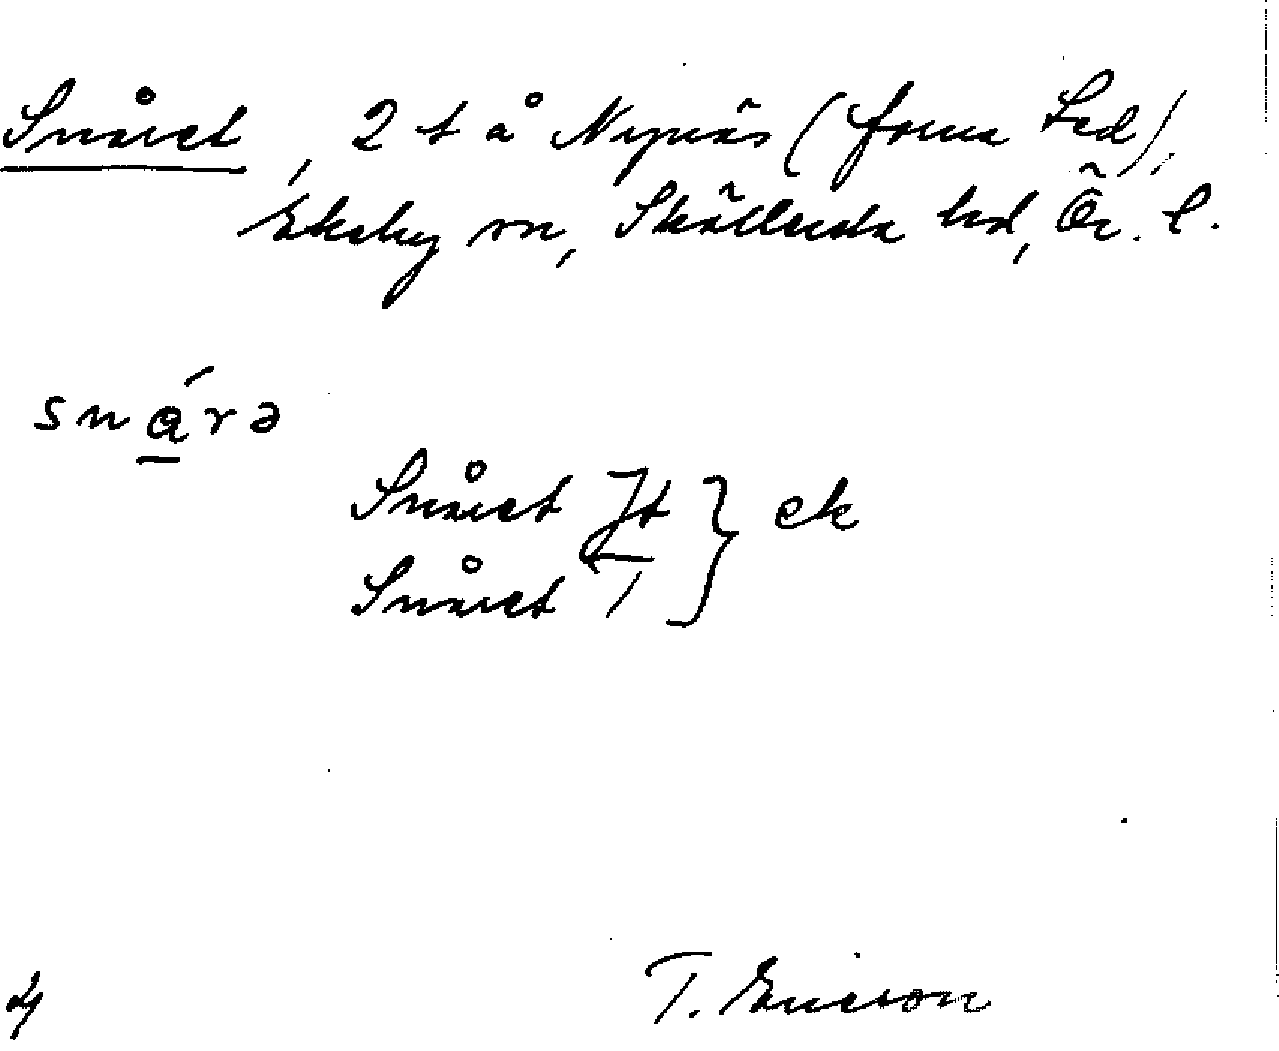 Snåret, 2 t å Nynäs (forna Led),
Ekeby sn, Sköllersta hd, Ör. l.
snárə
Snåret Jt } ek
Snåret T
4
T. Ericson